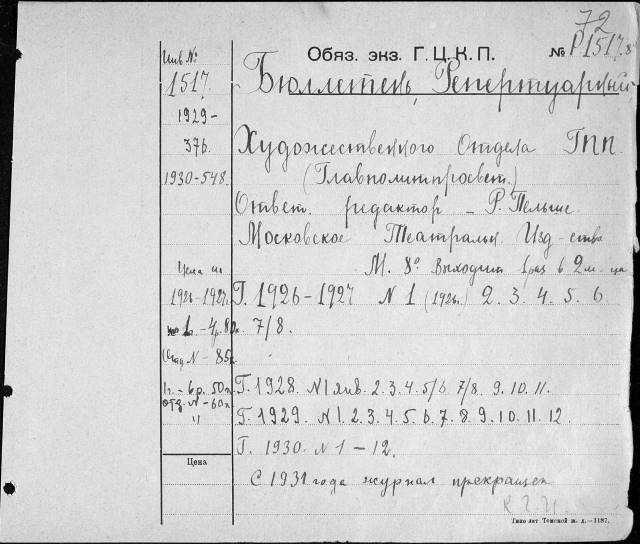 72
Обяз. экз. Г.Ц.К.П. № Р1517. 8°
Инв №
1517.
1929-
376.
1930-548.
Бюллетень, Репертуарный
Художественного Отдела ГПП
(Главполитпросвет.)
Ответ. редактор - Р. Пельше
Московское Театральн. Изд-ство
М. 8° Выходит 1 раз в 2 м-ца
Цена на
1926-1927г.
№ 1. - 4р. 80к.
Отд № - 85к.
Г. 1926-1927 N 1 (1926г.) 2. 3. 4. 5. 6.
7/8.
1г. - 6р. 50к.
отд. N - 60к
"
Г. 1928. N1 янв. 2. 3. 4. 5/6. 7/8. 9. 10. 11.
Г. 1929. N1. 2. 3. 4. 5. 6. 7. 8. 9. 10. 11. 12.
Г. 1930. N 1-12.
Цена
С 1931 года журнал прекращен
Типо лит Томской ж. д.—1187.